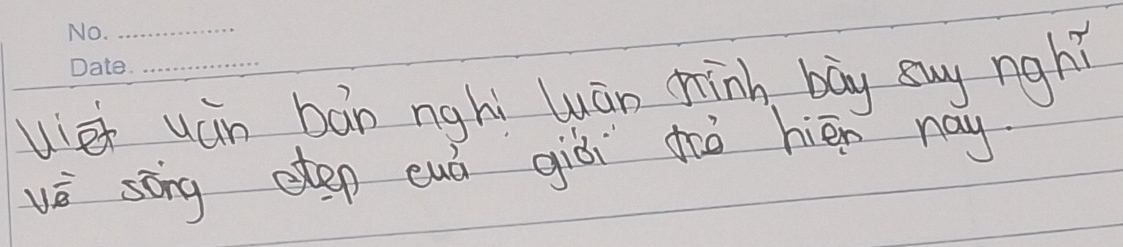 No. ...............
Date. ...............
Viết văn bản nghị luận trình bày suy nghĩ
về sống đẹp của giới trẻ hiện nay.